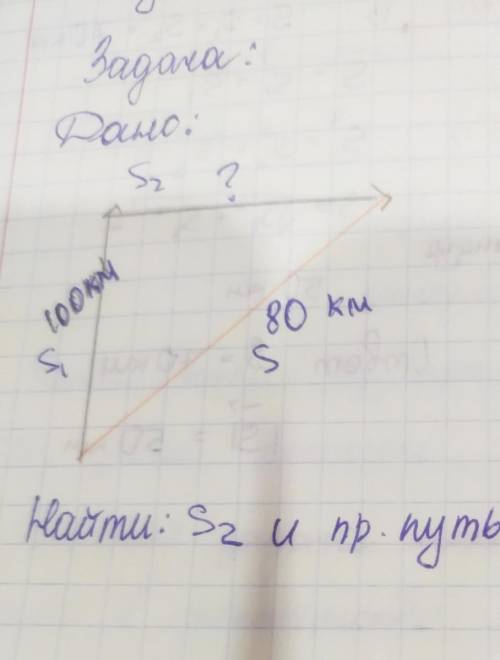 Задача:
Дано:
S₂ ?
100км
80 км
S₁
S
Найти: S₂ и пр. путь